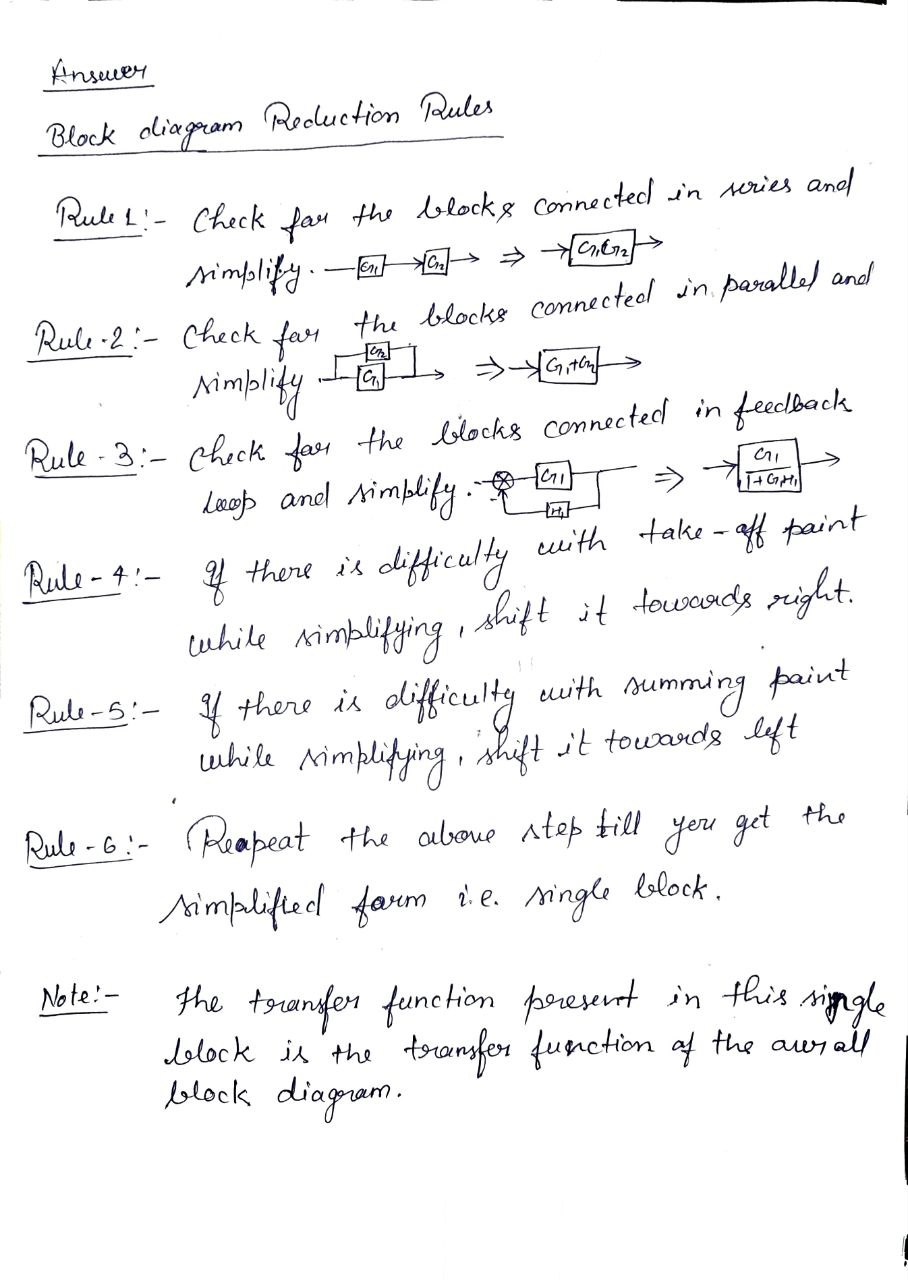 Answer
Block diagram Reduction Rules
Rule 1:- Check for the blocks connected in series and
simplify. G1 G2 ⇒ G1G2
Rule-2:- Check for the blocks connected in parallel and
simplify G2 G1 ⇒ G1+G2
Rule-3:- Check for the blocks connected in feedback
loop and simplify. G1 H1 ⇒ G1/1+G1H1
Rule-4:- If there is difficulty with take-off point
while simplifying, shift it towards right.
Rule-5:- If there is difficulty with summing point
while simplifying, shift it towards left
Rule-6:- Reapeat the above step till you get the
simplified form i.e. single block.
Note:- The transfer function present in this single
block is the transfer function of the over all
block diagram.